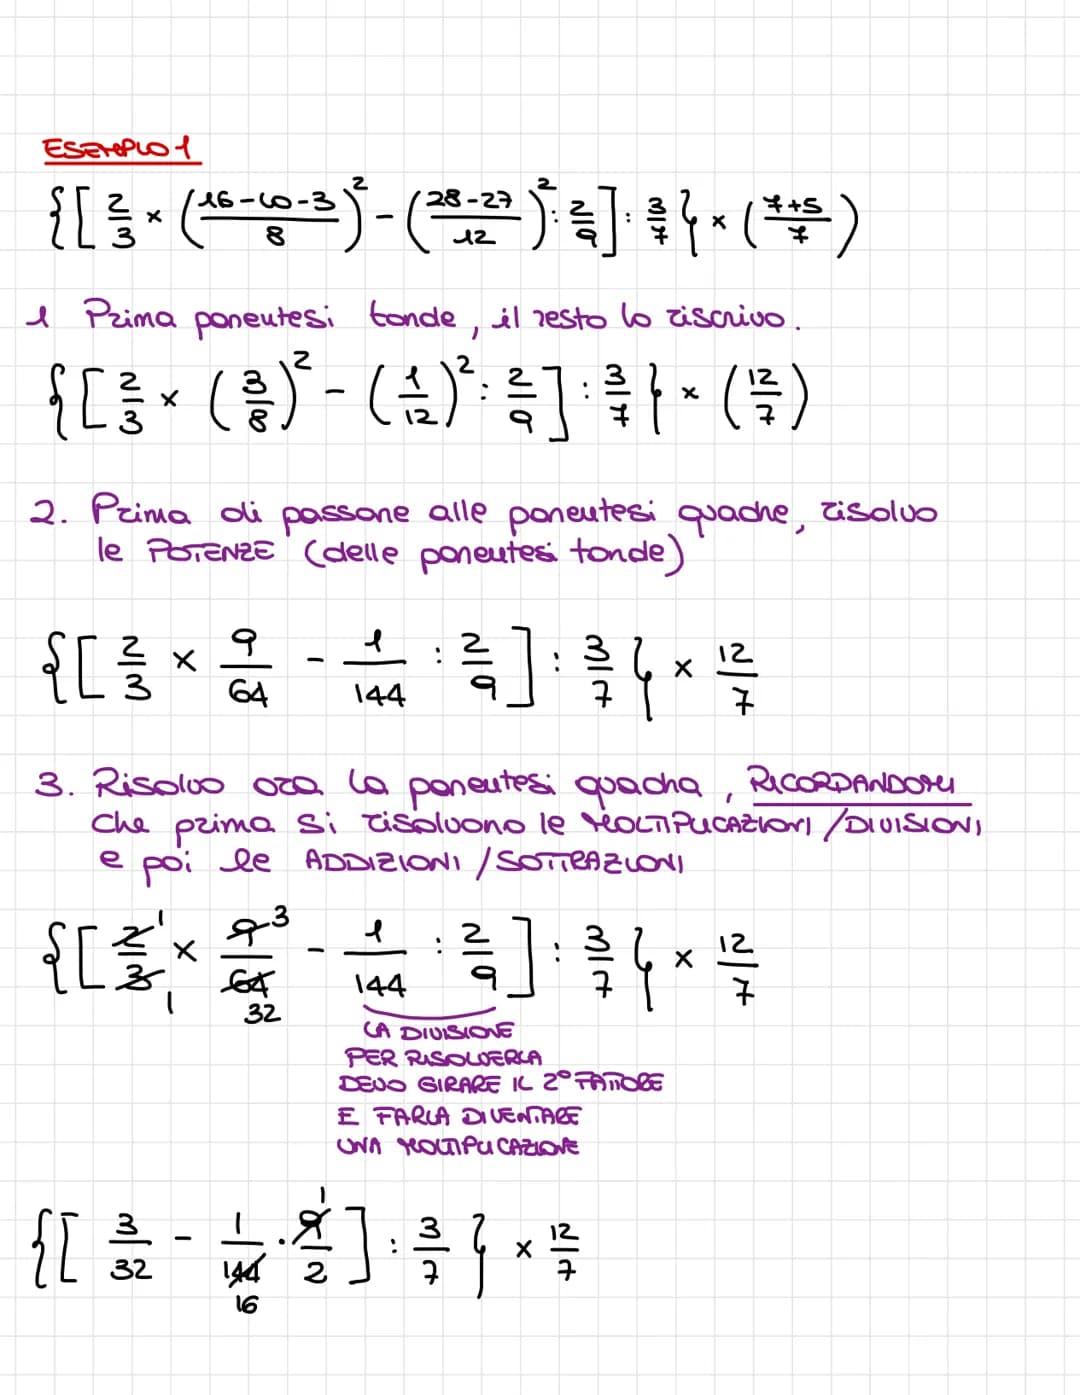 ESEMPIO 1
{[2/3 × ((16-10-3)/8)² - ((28-27)/12)² : 2/9] : 3/7} × ((7+5)/7)
1 Prima parentesi tonde, il resto lo riscrivo.
{[2/3 × (3/8)² - (1/12)² : 2/9] : 3/7} × (12/7)
2. Prima di passare alle parentesi quadre, risolvo
le POTENZE (delle parentesi tonde)
{[2/3 × 9/64 - 1/144 : 2/9] : 3/7} × 12/7
3. Risolvo ora la parentesi quadra, RICORDANDOMI
che prima si risolvono le MOLTIPLICAZIONI /DIVISIONI
e poi le ADDIZIONI /SOTTRAZIONI
1 3
{[2/3 × 9/64 - 1/144 : 2/9] : 3/7} × 12/7
1 32
LA DIVISIONE
PER RISOLVERLA
DEVO GIRARE IL 2° FATTORE
E FARLA DIVENTARE
UNA MOLTIPLICAZIONE
1
{[3/32 - 1/144 · 9/2] : 3/7} × 12/7
16